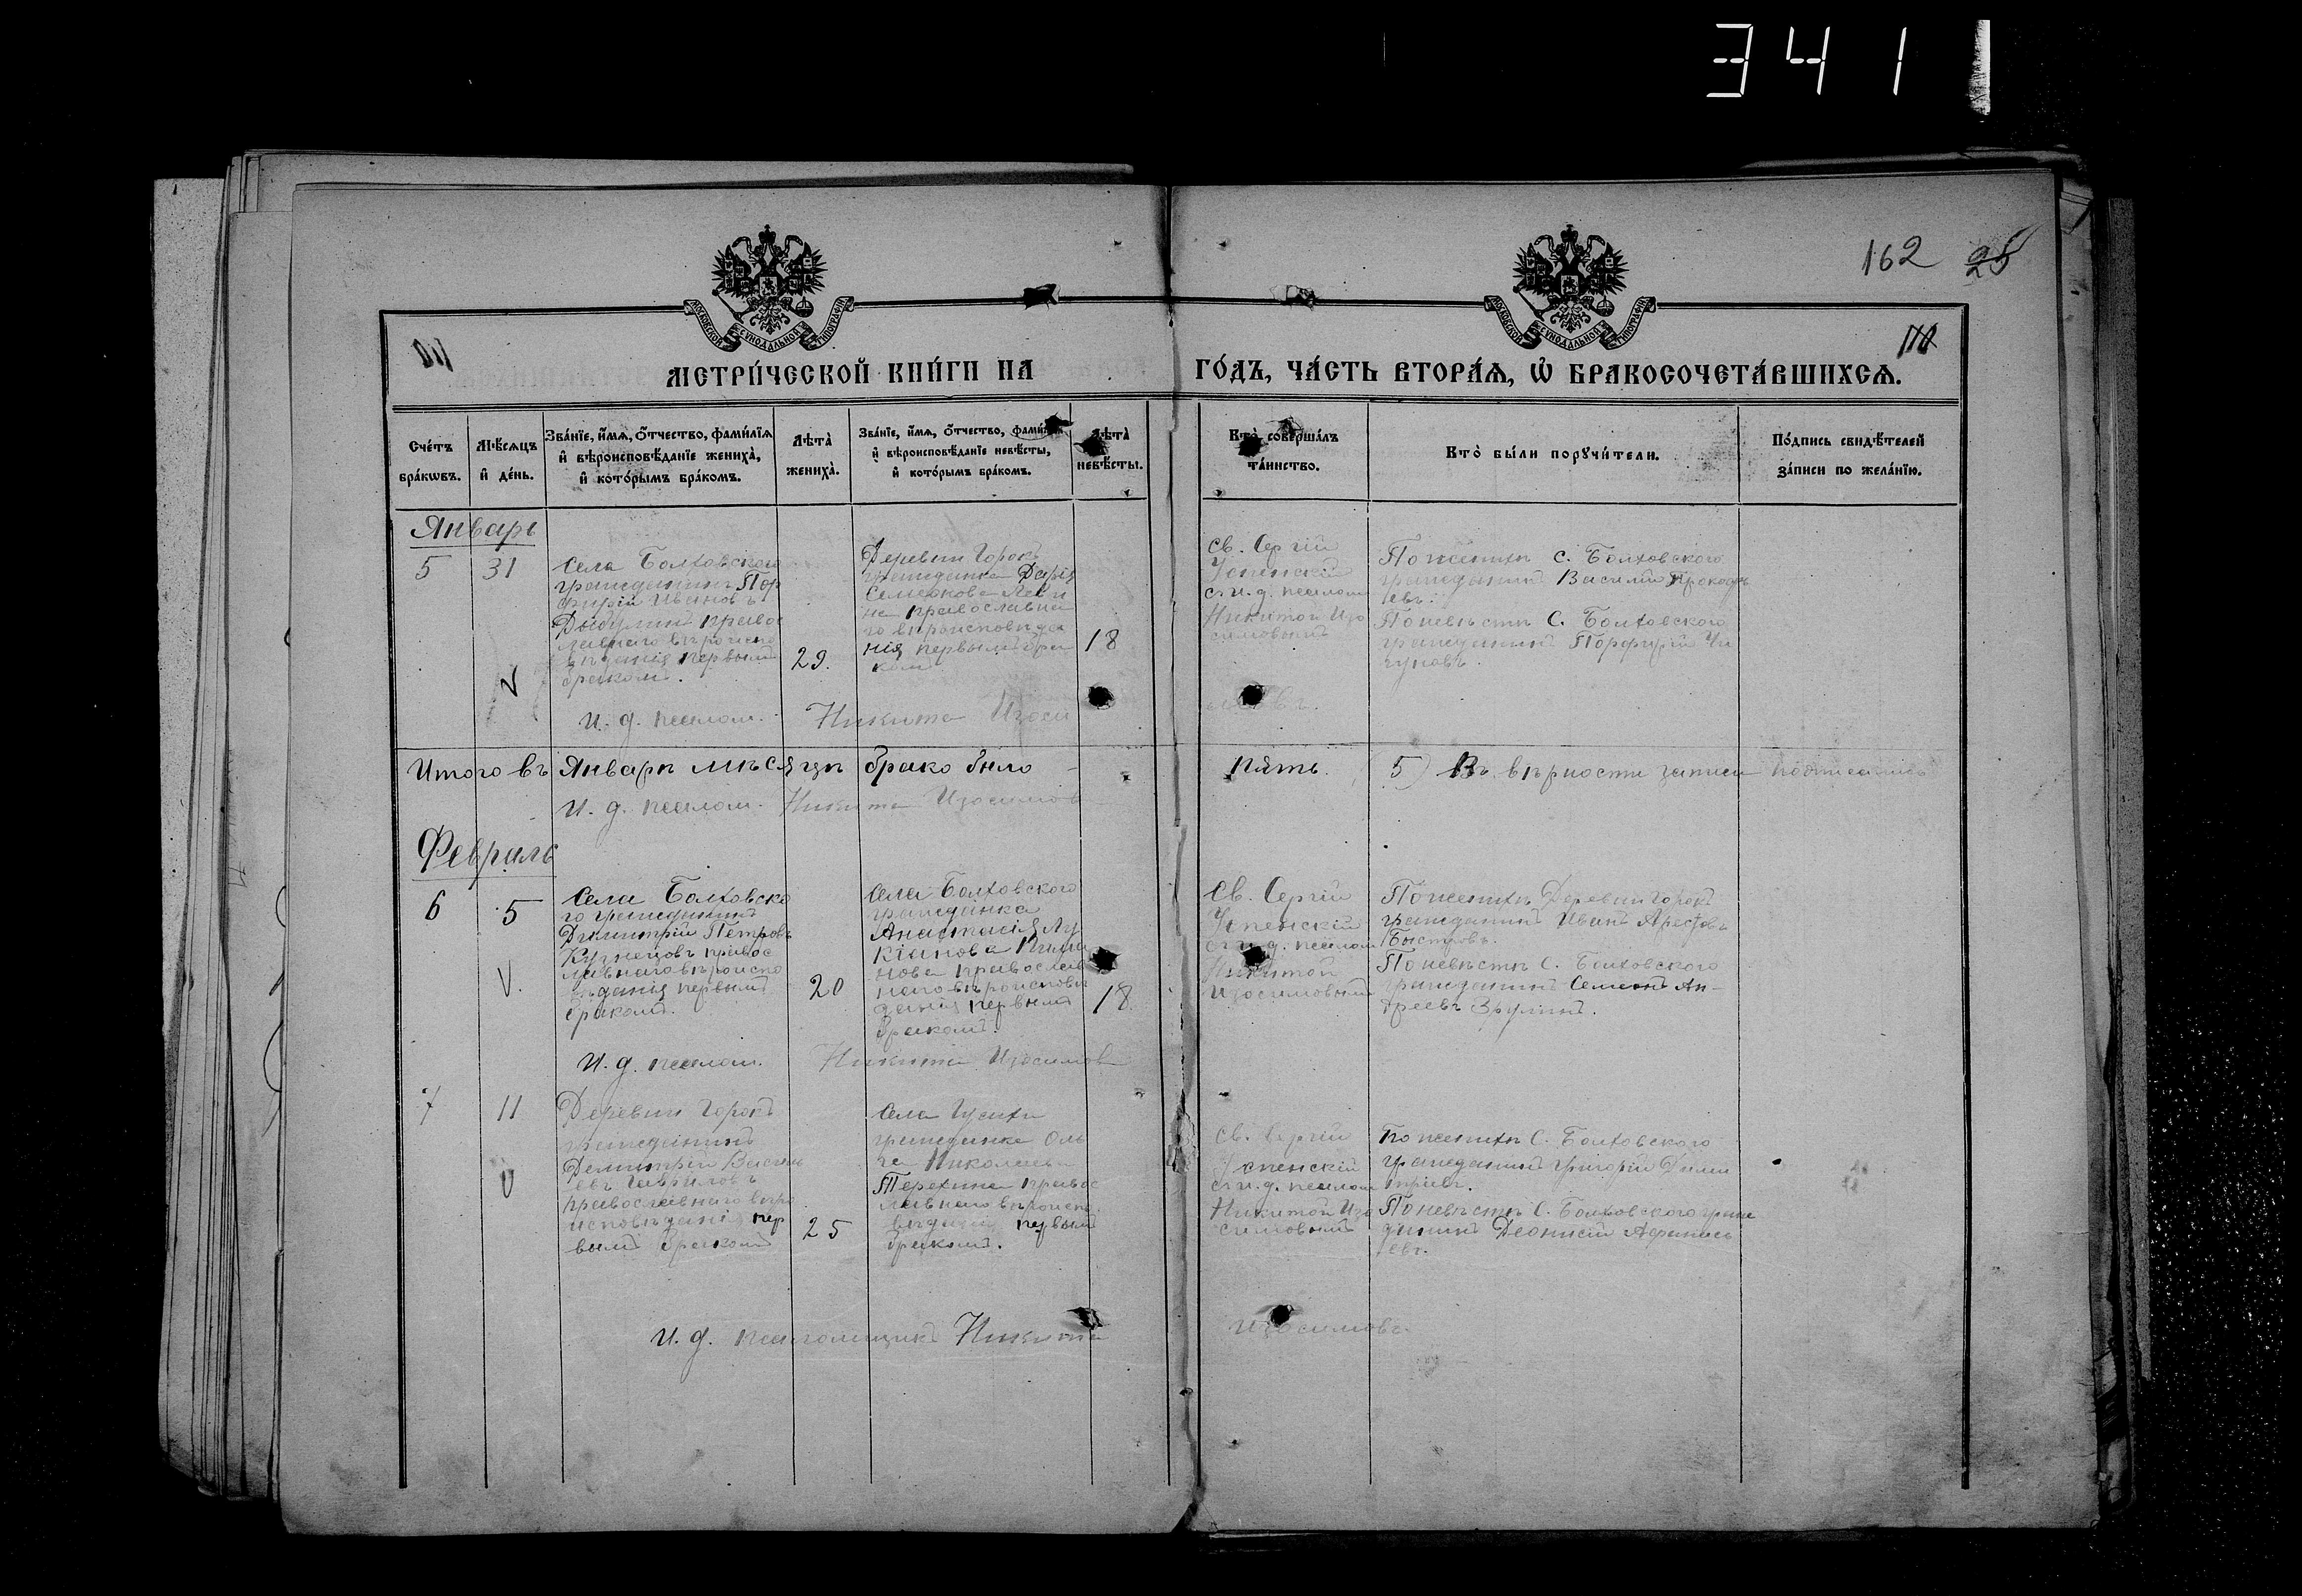 341
162 25
МОСКОВСКОЙ СѴНОДАЛЬНОЙ ТИПОГРАФІИ
МОСКОВСКОЙ СѴНОДАЛЬНОЙ ТИПОГРАФІИ
МЕТРИ́ЧЕСКОЙ КНИ́ГИ НА ГО́ДЪ, ЧА́СТЬ ВТОРА́Я, Ѡ БРАКОСОЧЕТА́ВШИХСЯ.
Сче́тъ бра́кѡвъ.
Мѣ́сяцъ и де́нь.
Зва́нїе, и́мя, о́тчество, фами́лїя и вѣроисповѣ́данїе жениха̀, и кото́рымъ бра́комъ.
Лѣта̀ жениха̀.
Зва́нїе, и́мя, о́тчество, фами́лїя и вѣроисповѣ́данїе невѣ́сты, и кото́рымъ бра́комъ.
Лѣта̀ невѣ́сты.
Кто̀ соверша́лъ та́инство.
Кто̀ бы́ли порꙋчи́тели.
По́дпись свидѣ́телей за́писи по жела́нїю.
Январь
5
31
Села Болховского
гражданинъ Пор
фирій Ивановъ
православ
наго вѣроиспо
вѣданія первымъ
бракомъ.
29.
Деревни Горокъ
гражданка Дарія
православна
го вѣроисповѣда
нія первымъ бра
комъ
18
Св. Сергій
Успенскій
съ и. д. псалом
Никитой Изо
симовымъ
По женихѣ с. Болховского
гражданинъ Василій Прокофь
евъ.
По невѣстѣ С. Болховского
гражданинъ Порфирій Чи
гуновъ.
И. д. псалом. Никита Изоси
мовъ.
Итого въ Январѣ мѣсяцѣ брако было пять. 5) Въ вѣрности записи подписались
И. д. псалом. Никита Изосимовъ
Февраль
6
5
Села Болховско
го гражданинъ
Димитрій Петровъ
Кузнецовъ правос
лавнаго вѣроиспо
вѣданія первымъ
бракомъ.
20
Села Болховского
гражданка
Анастасія Лу
кіанова
нова православ
наго вѣроисповѣ
данія первымъ
бракомъ.
18
Св. Сергій
Успенскій
съ и. д. псалом
Никитой
Изосимовымъ
По женихѣ Деревни Горокъ
гражданинъ Иванъ Арефьевъ
Быстровъ.
По невѣстѣ С. Болховского
гражданинъ Семенъ Ан-
дреевъ Зрулинъ.
И. д. псалом. Никита Изосимов
7
11
Деревни Горокъ
гражданинъ
Димитрій Василь
евъ Гавриловъ
православнаго вѣро
исповѣданія пер
вымъ бракомъ
25
Села Гусихи
гражданка Оль
га Николаева
Терехина правос
лавнаго вѣроиспо
вѣданія первымъ
бракомъ.
Св. Сергій
Успенскій
съ и. д. псалом
Никитой Изо
симовымъ
По женихѣ С. Болховского
гражданинъ Григорій Дими
тріевъ.
По невѣстѣ С. Болховского граж
данинъ Деонисій Афанась
евъ.
И. д. псаломщикъ Никита Изосимовъ.